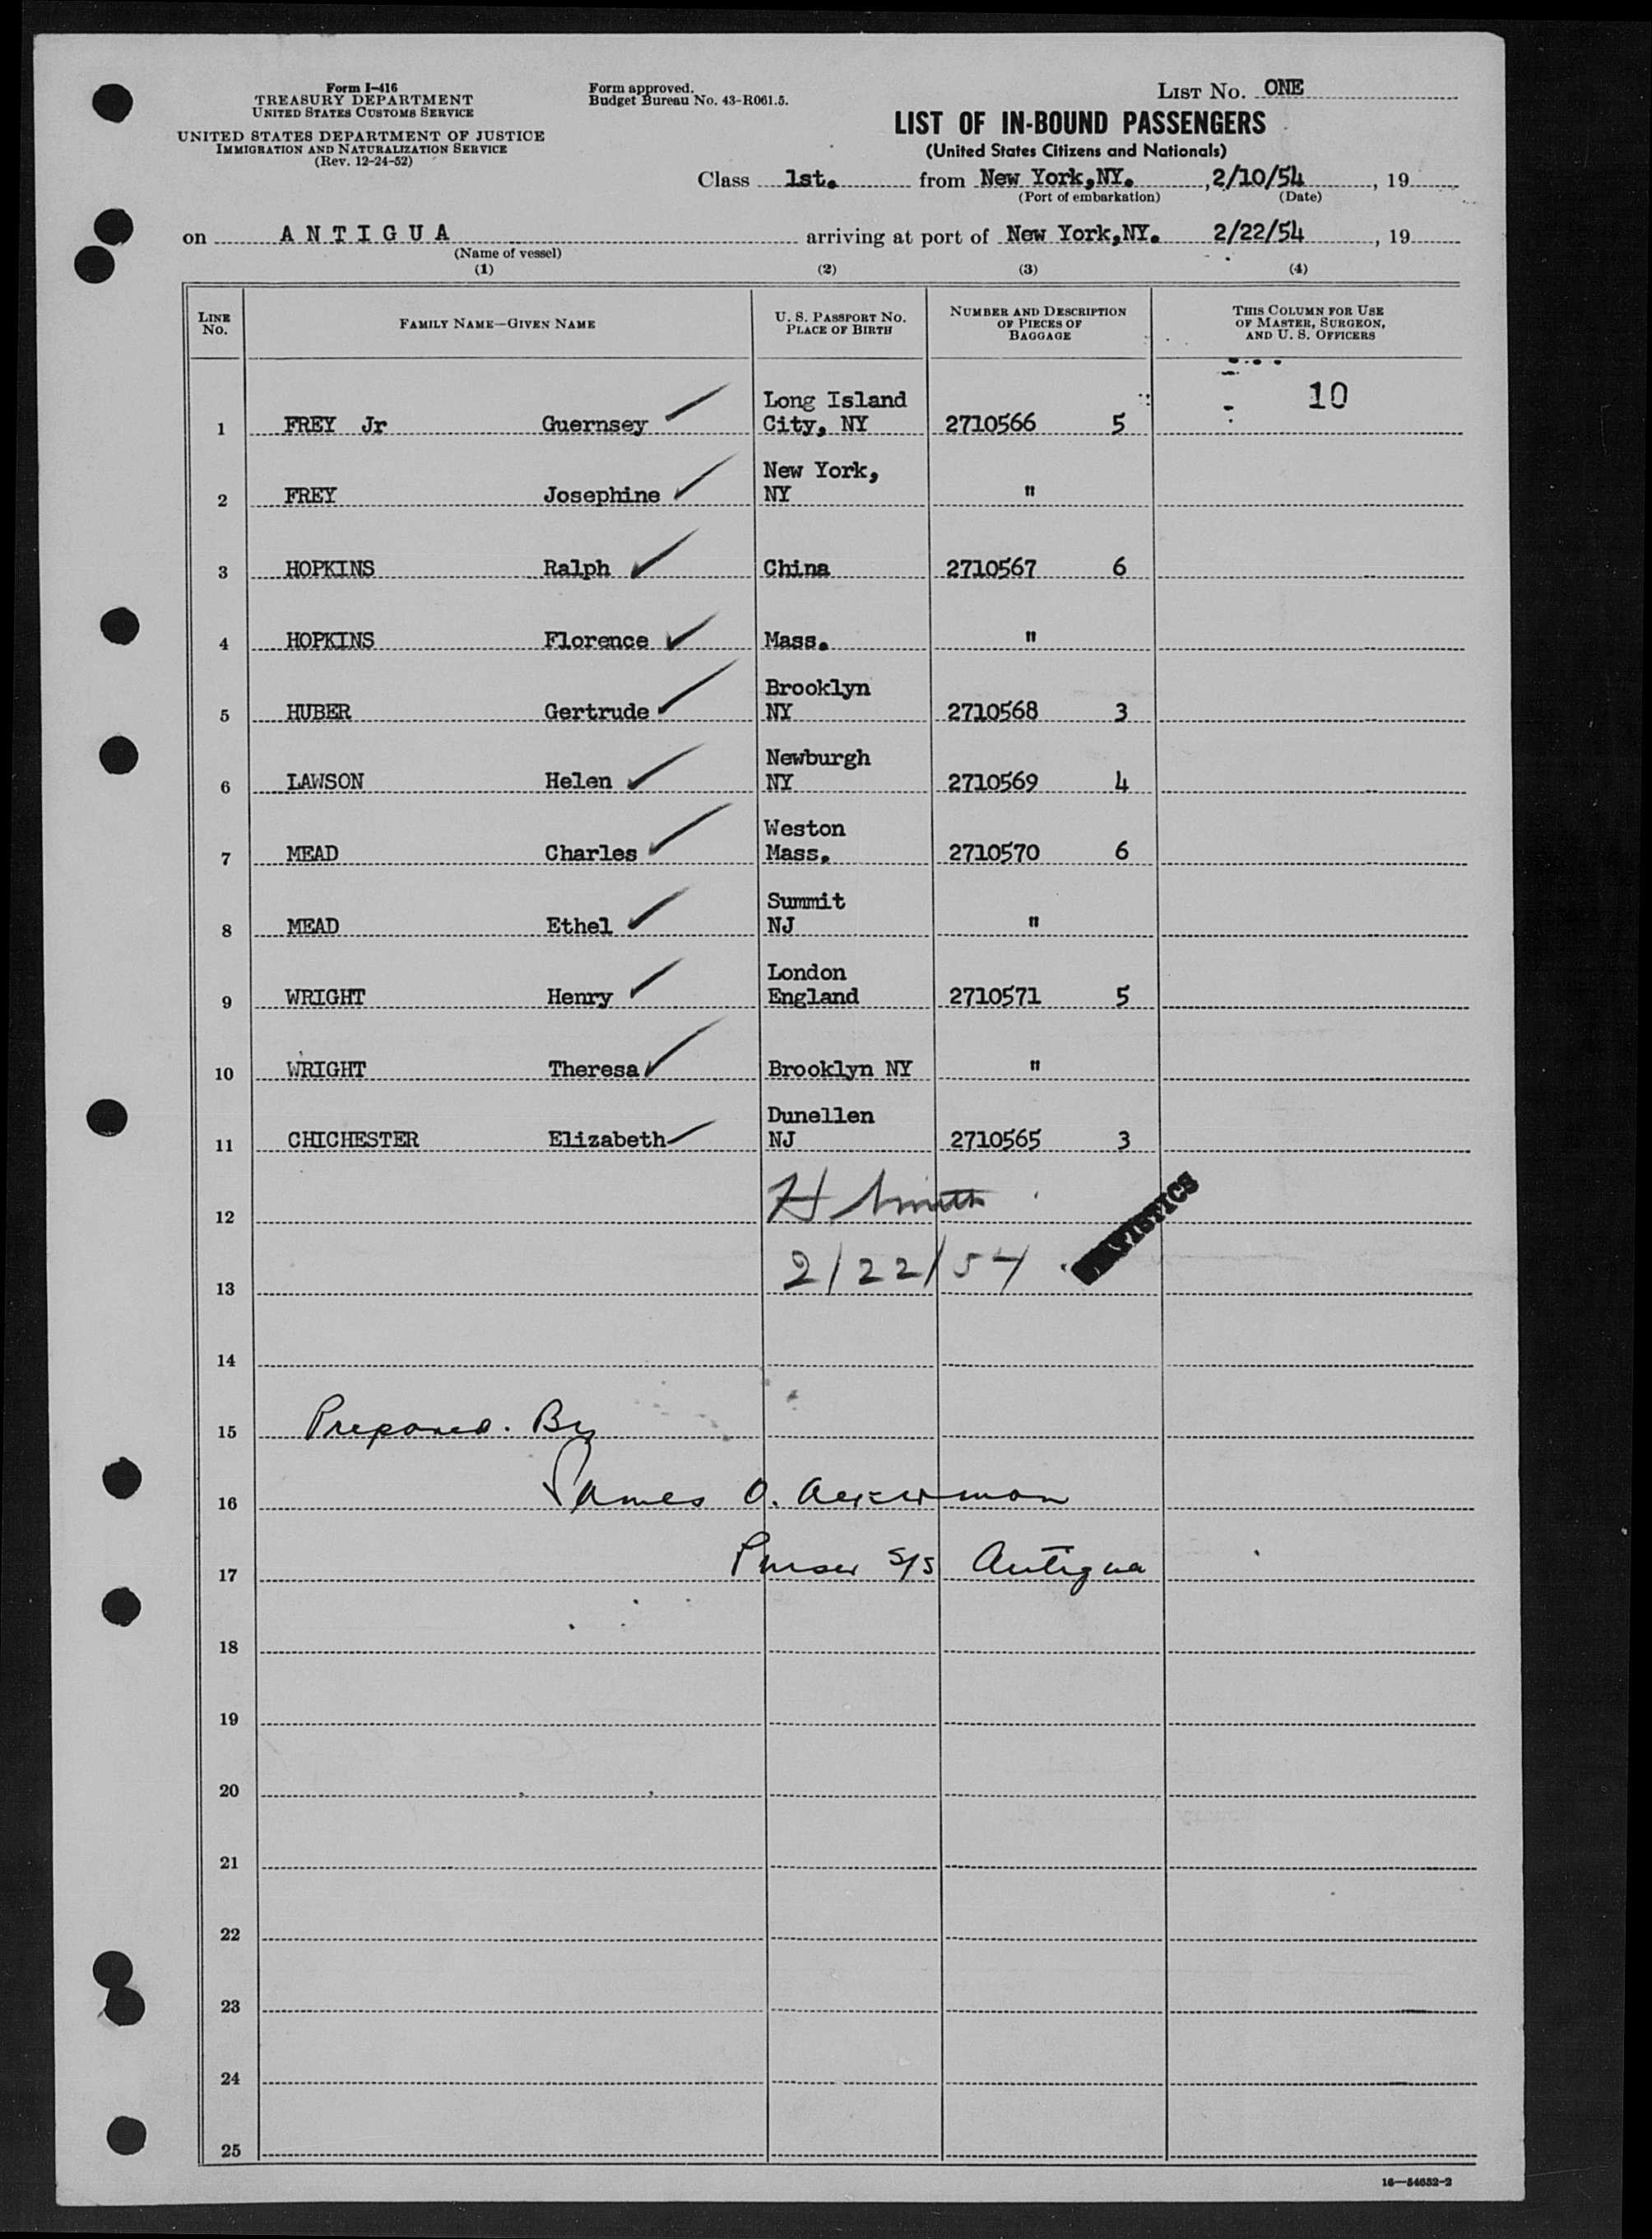 Form I-416
TREASURY DEPARTMENT
UNITED STATES CUSTOMS SERVICE
UNITED STATES DEPARTMENT OF JUSTICE
IMMIGRATION AND NATURALIZATION SERVICE
(Rev. 12-24-52)
Form approved.
Budget Bureau No. 43-R061.5.
LIST NO. ONE
LIST OF IN-BOUND PASSENGERS
(United States Citizens and Nationals)
Class 1st. from New York,NY. ,2/10/54 , 19
(Port of embarkation) (Date)
on A N T I G U A arriving at port of New York,NY. 2/22/54 , 19
(Name of vessel)
(1) (2) (3) (4)
LINE NO. FAMILY NAME—GIVEN NAME U. S. PASSPORT NO. PLACE OF BIRTH NUMBER AND DESCRIPTION OF PIECES OF BAGGAGE THIS COLUMN FOR USE OF MASTER, SURGEON, AND U. S. OFFICERS
10
1 FREY Jr Guernsey Long Island City, NY 2710566 5
2 FREY Josephine New York, NY "
3 HOPKINS Ralph China 2710567 6
4 HOPKINS Florence Mass. "
5 HUBER Gertrude Brooklyn NY 2710568 3
6 LAWSON Helen Newburgh NY 2710569 4
7 MEAD Charles Weston Mass. 2710570 6
8 MEAD Ethel Summit NJ "
9 WRIGHT Henry London England 2710571 5
10 WRIGHT Theresa Brooklyn NY "
11 CHICHESTER Elizabeth Dunellen NJ 2710565 3
12 H Smith
13 2/22/54
14
15 Prepared. By
16 James O. Ackerman
17 Purser S/S Antigua
18
19
20
21
22
23
24
25
16—54652-2